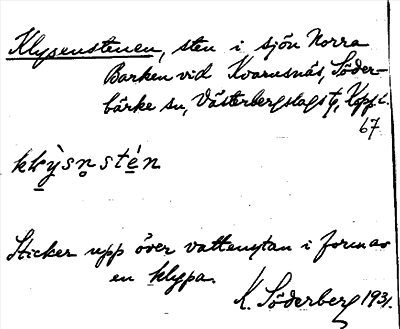 Klysenstenen, sten i sjön Norra
Barken vid Kvarnsnäs, Söder-
bärke sn, Västerbergslags
67
kḷỳsn̥stén
Sticker upp över vattenytan i form av
en klyppa.
K. Söderberg 1931.